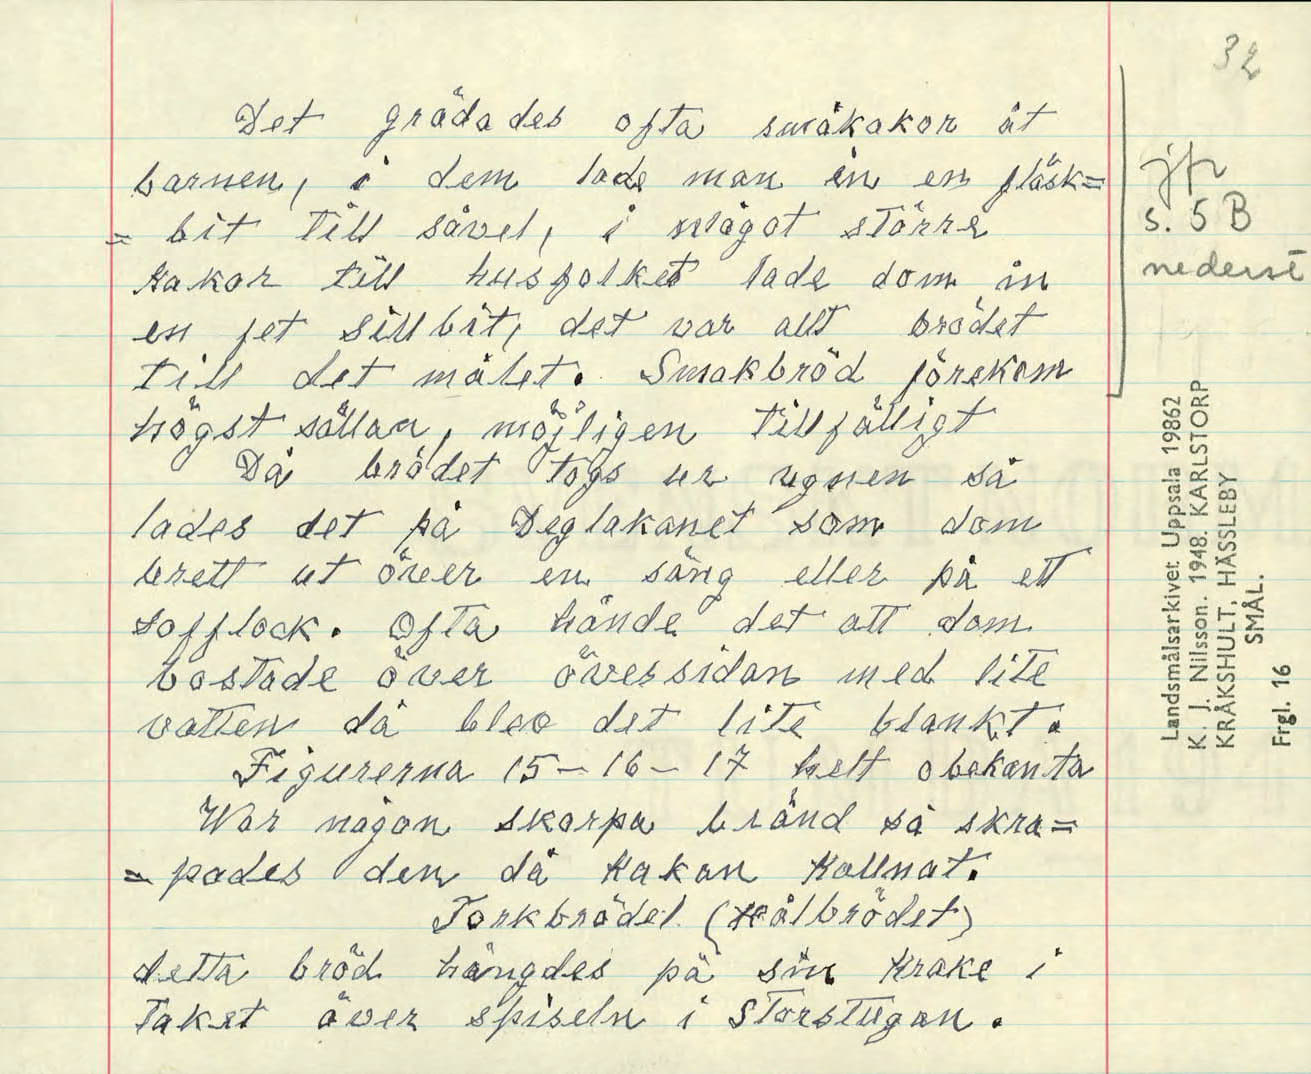 32
Det gräddades ofta småkakor åt
barnen, i dem lade man in en fläsk=
= bit till såvel, i något större
kakor till husfolket lade dom in
en fet sillbit, det var allt brödet
till det målet. Smakbröd förekom
högst sällan, möjligen tillfälligt
Då brödet togs ur ugnen så
lades det på Deglakanet som dom
brett ut över en säng eller på ett
sofflock. Ofta hände det att dom
bastade över översidan med lite
vatten då blev det lite blankt.
Figurerna 15–16–17 helt obekanta
War någon skorpa bränd så skra=
= pades den då kakan kallnat.
Torkbrödet (Hålbrödet)
detta bröd hängdes på sin krake i
taket över spiseln i Storstugan.
jfr
s. 5 B
nederst
Landsmålsarkivet Uppsala 19862
K. J. Nilsson. 1948. KARLSTORP
KRÅKSHULT, HÄSSLEBY
SMÅL.
Frgl. 16